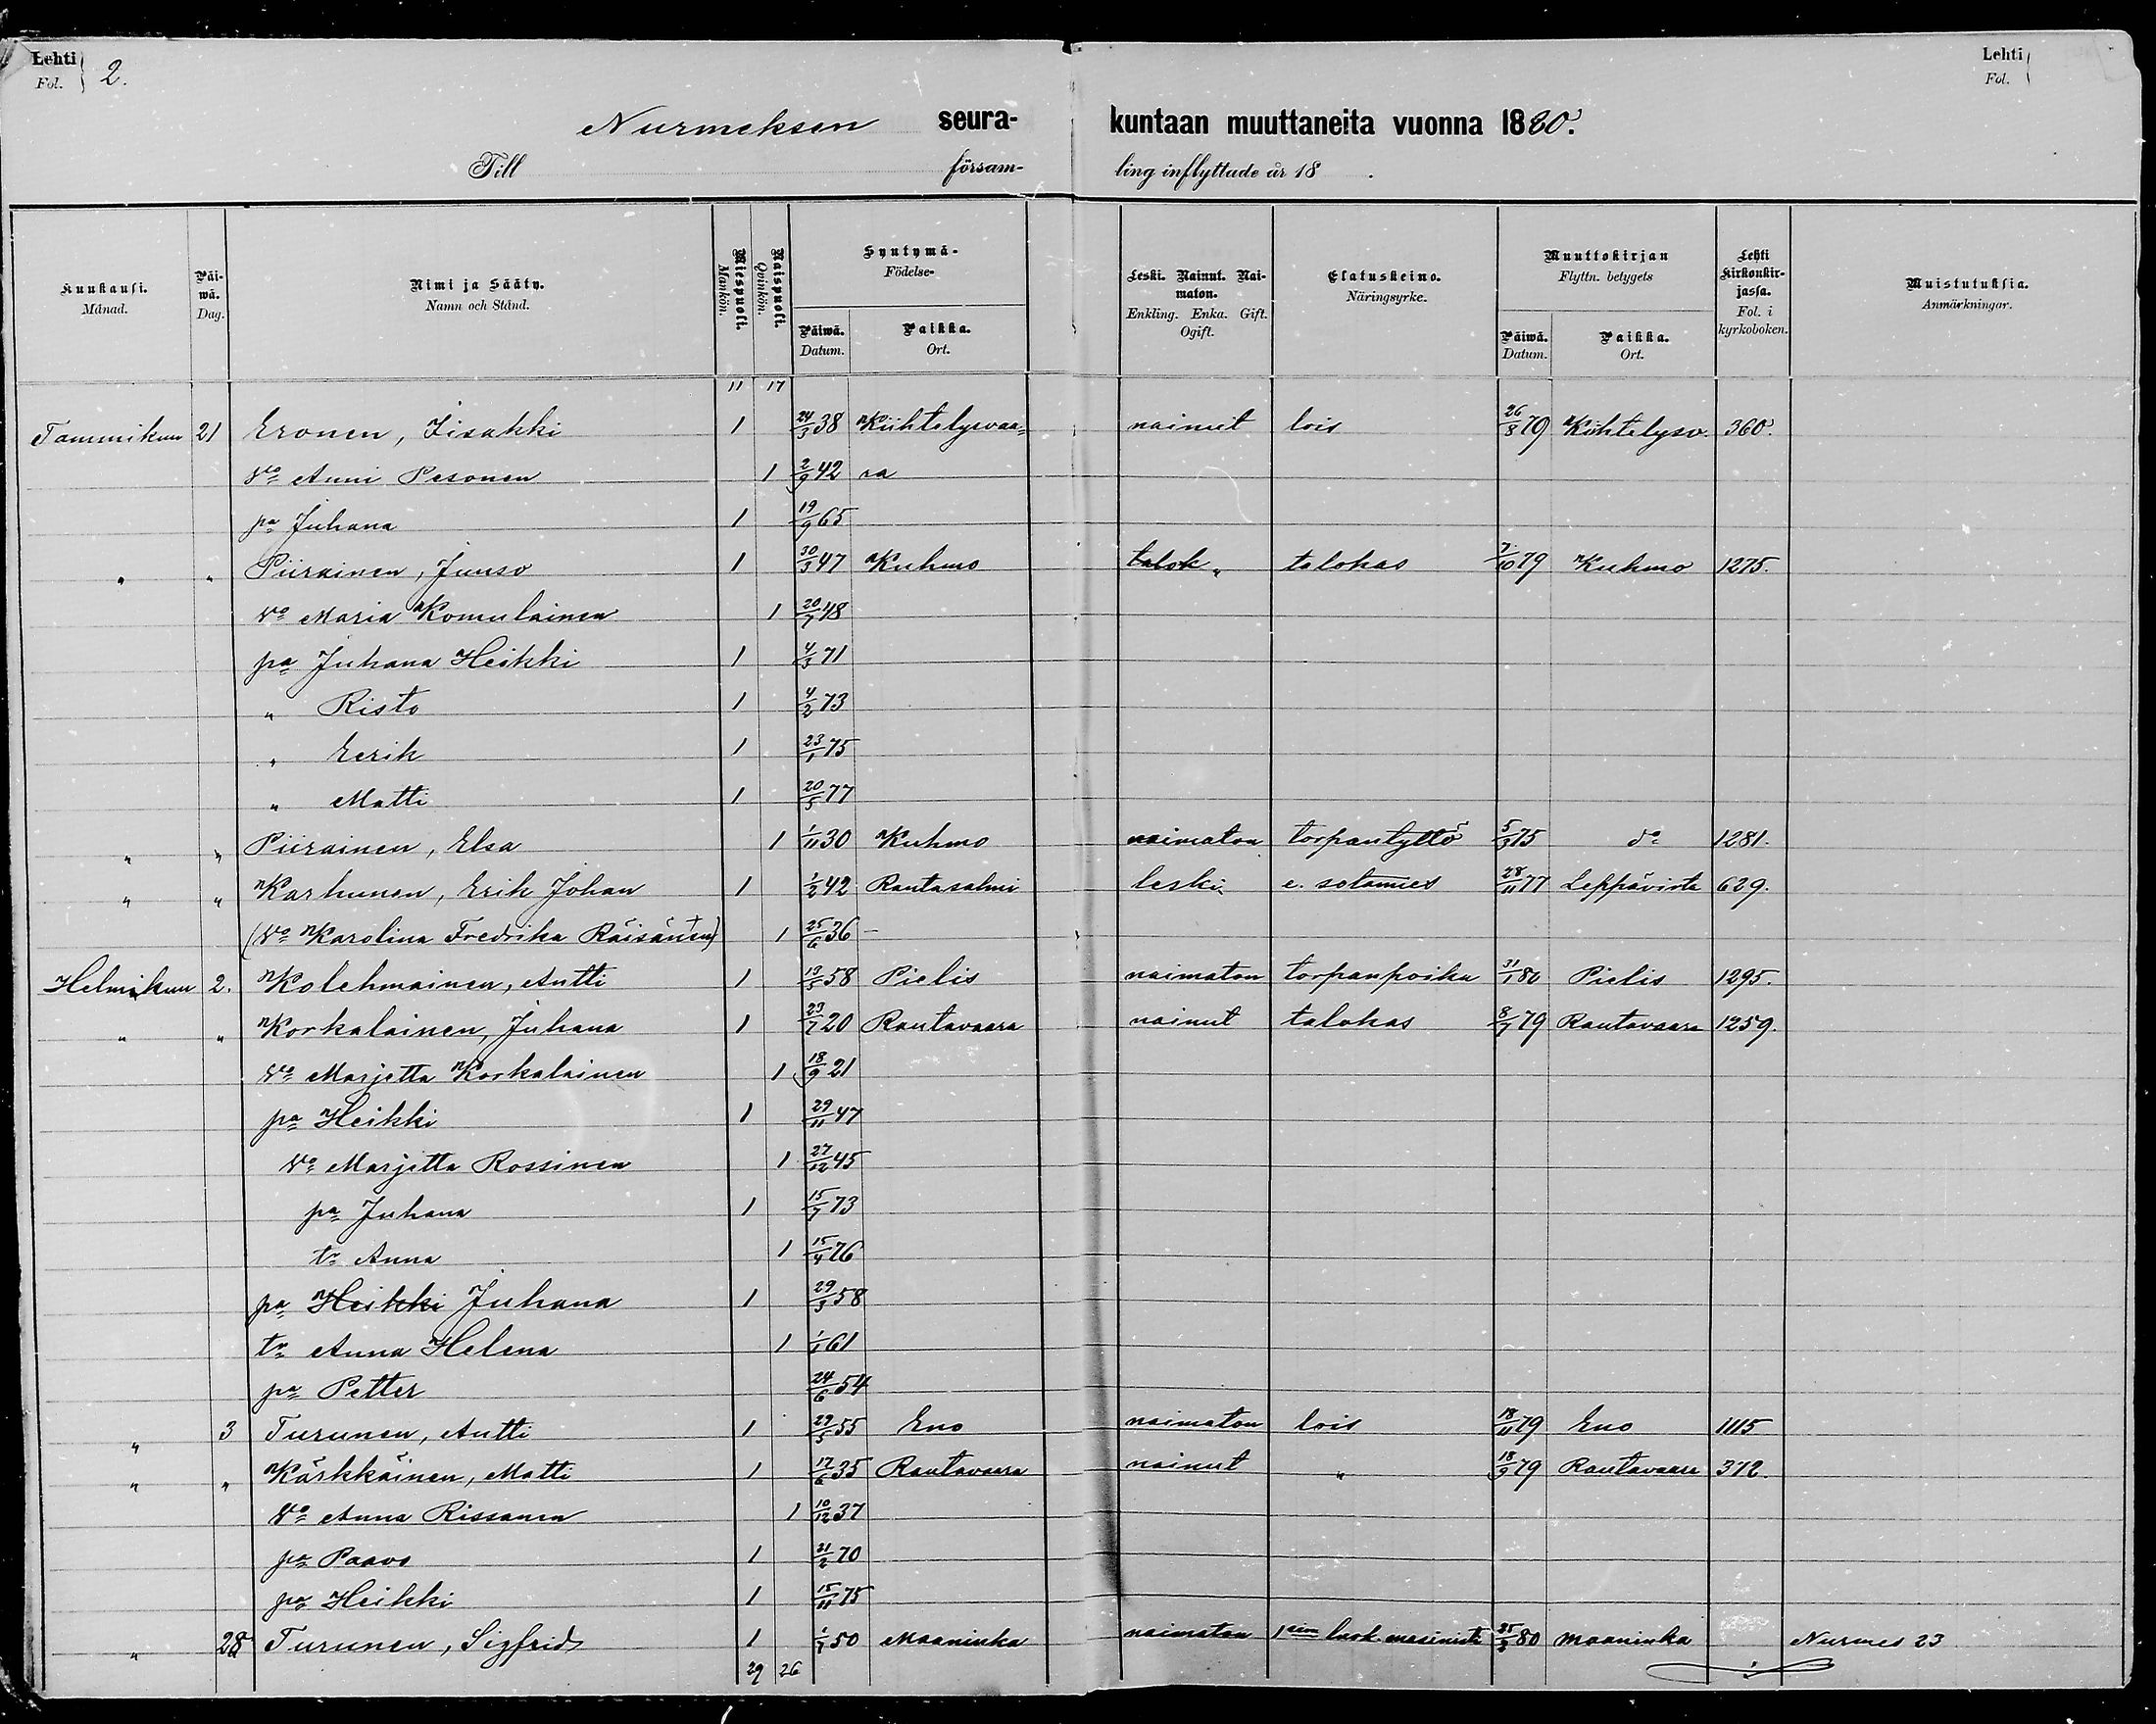 Lehti Fol. 2.
Lehti Fol.
Nurmeksen seurakuntaan muuttaneita vuonna 1880.
Till försam- ling inflyttade år 18 .
Kuukausi. Månad. Päiwä. Dag. Nimi ja Sääty. Namn och Stånd. Miespuoli. Mankön. Naispuoli. Qvinkön. Syntymä- Födelse- Päiwä. Datum. Paikka. Ort. Leski. Nainut. Naimaton. Enkling. Enka. Gift. Ogift. Elatuskeino. Näringsyrke. Muuttokirjan Flyttn. betygets Päiwä. Datum. Paikka. Ort. Lehti kirkonkirjassa. Fol. i kyrkoboken. Muistutuksia. Anmärkningar.
11 17
Tammikuu 21 Eronen, Iisakki 1 24/3 38 Kiihtelysvaa= nainut lois 26/8 79 Kiihtelysv. 360.
vo Anni Pesonen 1 2/9 42 ra
pa Juhana 1 19/9 65
" " Piirainen, Juuso 1 30/3 47 Kuhmo talok " talokas 7/10 79 Kuhmo 1275.
vo Maria Komulainen 1 20/7 48
pa Juhana Heikki 1 4/3 71
" Risto 1 4/2 73
" Eerik 1 23/1 75
" Matti 1 20/5 77
" " Piirainen, Elsa 1 1/11 30 Kuhmo naimaton torpantyttö 5/3 75 do 1281.
" " Karhunen, Erik Johan 1 1/2 42 Rantasalmi leski e. sotamies 28/11 77 Leppävirta 629.
(vo Karolina Fredrika Räisänen) 1 25/6 36 –
Helmikuu 2. Kolehmainen, Antti 1 13/5 58 Pielis naimaton torpanpoika 31/1 80 Pielis 1295.
" " Korkalainen, Juhana 1 23/7 20 Rautavaara nainut talokas 8/7 79 Rautavaara 1259.
vo Marjetta Korkalainen 1 18/9 21
pa Heikki 1 29/11 47
vo Marjetta Rossinen 1 27/12 45
pa Juhana 1 15/7 73
tr Anna 1 15/4 76
pa Heikki Juhana 1 29/3 58
tr Anna Helena 1 1/1 61
pa Petter 24/6 54
" 3 Turunen, Antti 1 29/5 55 Eno naimaton lois 18/11 79 Eno 1115
" " Kärkkäinen, Matti 1 17/6 35 Rautavaara nainut " 18/9 79 Rautavaara 372.
vo Anna Rissanen 1 10/12 37
pa Paavo 1 21/2 70
pa Heikki 1 15/11 75
" 28 Turunen, Sigfrid 1 1/7 50 Maaninka naimaton 1sen luok. masinisti 25/2 80 Maaninka Nurmes 23
29 26